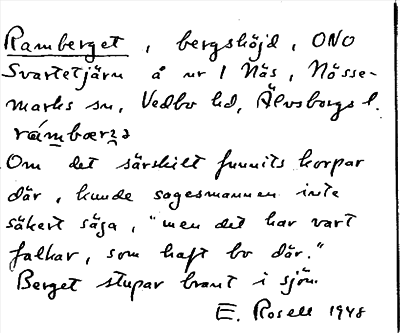 Ramberget, bergshöjd, ONO
Svartetjärn å nr 1 Näs, Nösse-
marks sn, Vedbo hd, Älvsborgs l.
rámbærʒə
Om det särskilt funnits korpar
där, kunde sagesmannen inte
säkert säga, "men det har vart
falkar, som haft bo där."
Berget stupar brant i sjön.
E. Rosell 1948